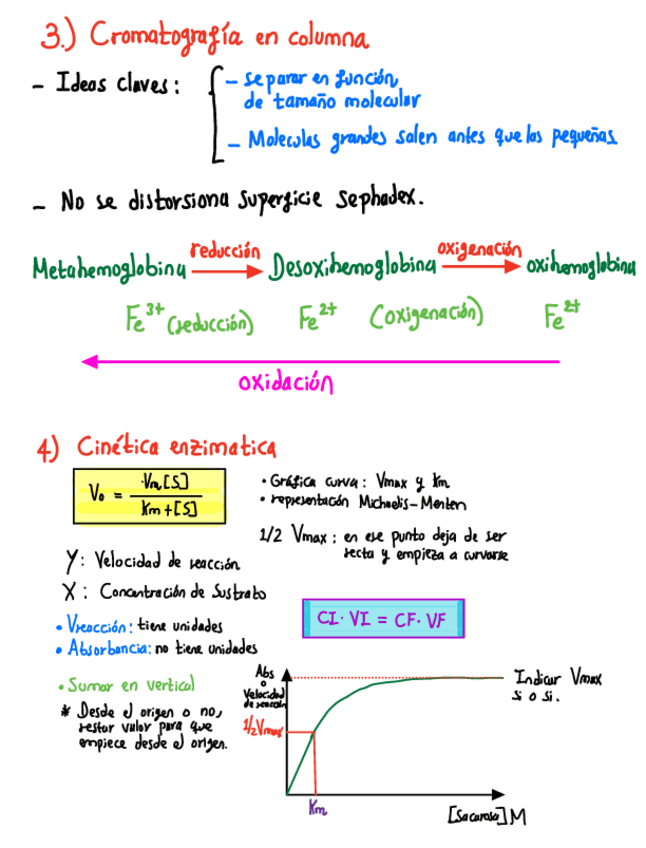 3.) Cromatografía en columna
- Ideas claves:
- separar en función
de tamaño molecular
- Moleculas grandes salen antes que las pequeñas
- No se distorsiona superficie sephadex.
Metahemoglobina reducción Desoxihemoglobina oxigenación oxihemoglobina
Fe3+ (reducción) Fe2+ (oxigenación) Fe2+
oxidación
4) Cinética enzimatica
V₀ = Vm[S] / Km+[S]
• Gráfica curva: Vmax y Km
• representación Michaelis-Menten
1/2 Vmax: en ese punto deja de ser
recta y empieza a curvarse
Y: Velocidad de reacción
X: Concentración de Sustrato
CI · VI = CF · VF
• Vreacción: tiene unidades
• Absorbancia: no tiene unidades
• Sumar en vertical
* Desde el origen o no,
restar valor para que
empiece desde el origen.
Abs
o
Velocidad
de reacción
1/2 Vmax
Km
[Sacarosa] M
Indicar Vmax
si o si.